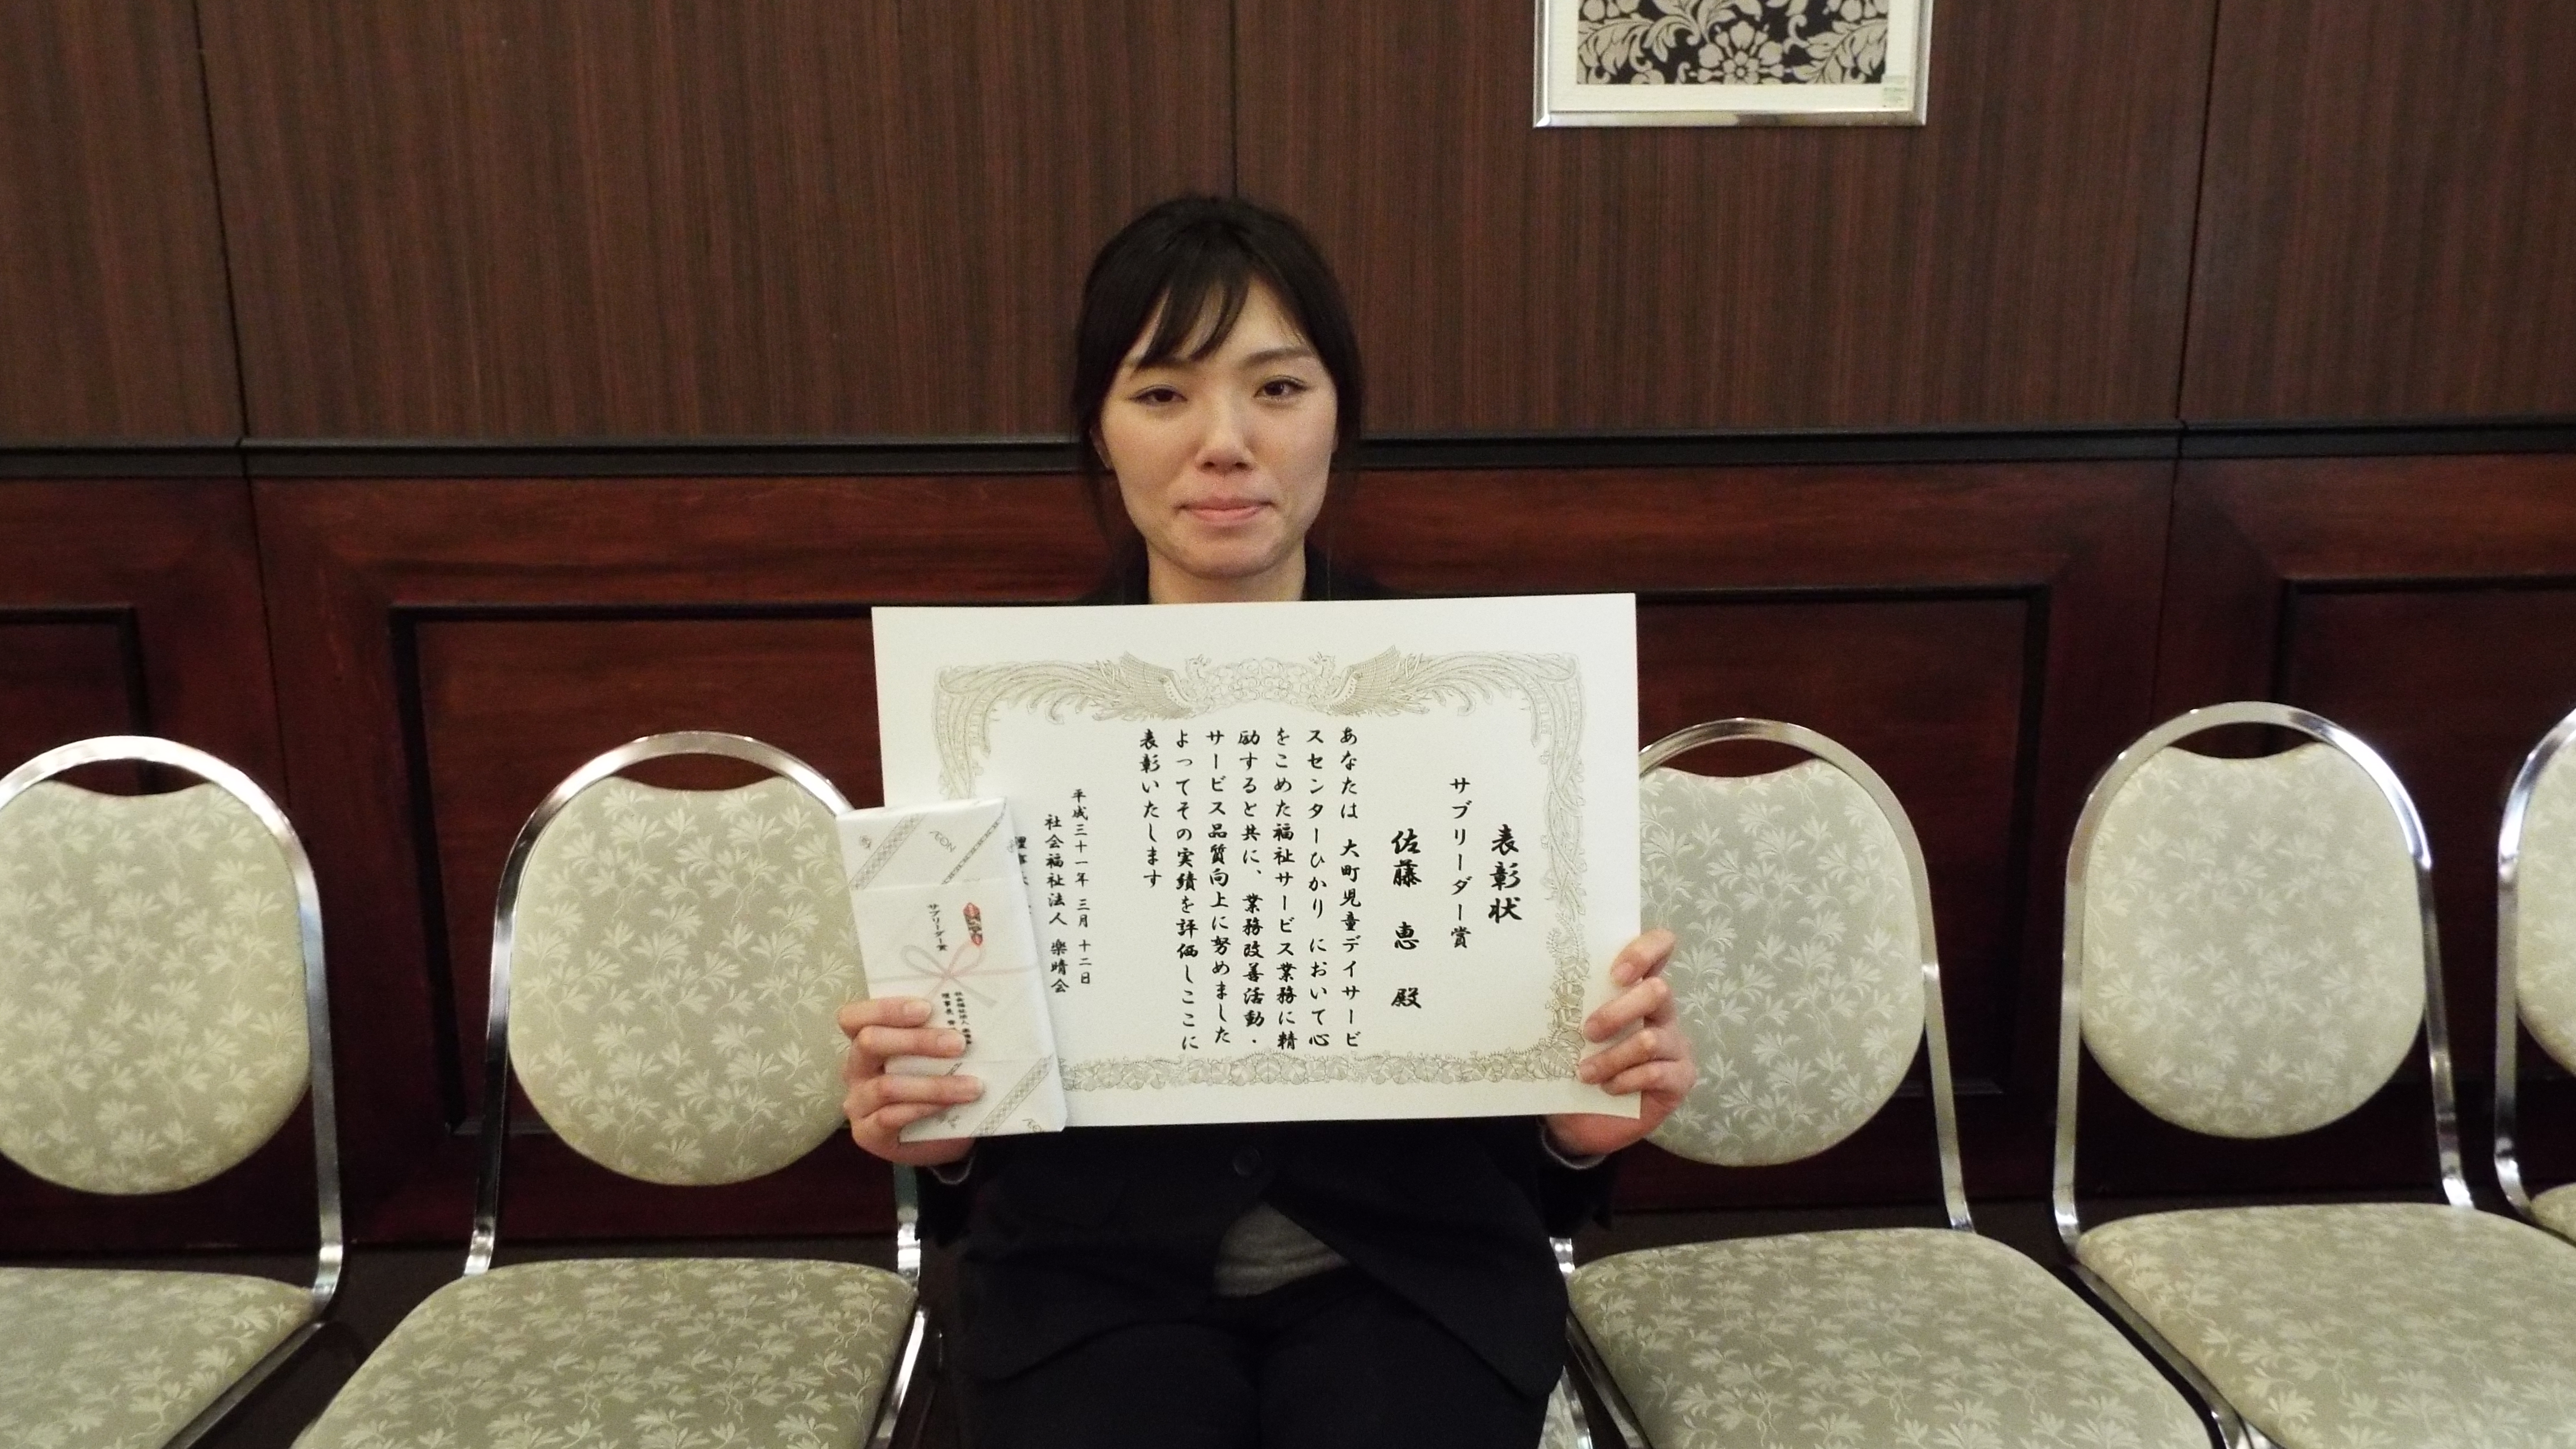 表彰状
サブリーダー賞
佐藤 恵 殿
あなたは 大町児童デイサービ
スセンターひかり において心
をこめた福祉サービス業務に精
励すると共に、業務改善活動・
サービス品質向上に努めました
よってその実績を評価しここに
表彰いたします
平成三十一年 三月 十二日
社会福祉法人 楽晴会
理事
ÆON
サブリーダー賞
社会福祉法人
理事長